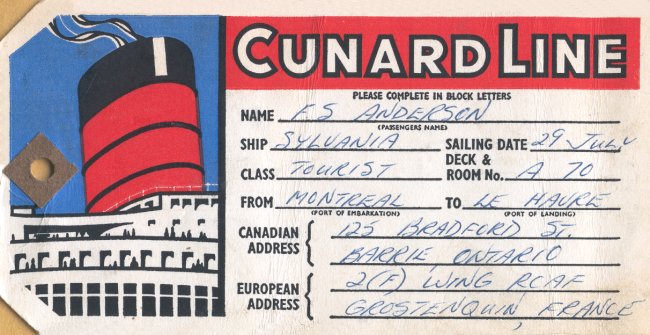 CUNARD LINE
PLEASE COMPLETE IN BLOCK LETTERS
NAME FS ANDERSON
(PASSENGERS NAME)
SHIP SYLVANIA SAILING DATE 29 July
CLASS TOURIST DECK & ROOM No. A 70
FROM MONTREAL TO LE HAVRE
(PORT OF EMBARKATION) (PORT OF LANDING)
CANADIAN ADDRESS { 125 BRADFORD ST.
BARRIE, ONTARIO
EUROPEAN ADDRESS { 2(F) WING RCAF
GROSTENQUIN, FRANCE